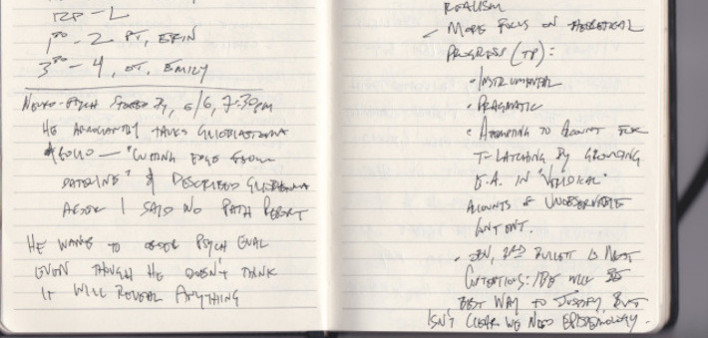 RP - L
1⁰⁰ - 2 PT, ERIN
3⁰⁰ - 4, OT, EMILY
NEURO-PSYCH 6/6, 7:30pm
HE ARROGANTLY TAKES GLIOBLASTOMA
- "CUTTING EDGE FROM
DATELINE" & DESCRIBED GLIOBLASTOMA
AFTER I SAID NO PATH REPORT
HE WANTS TO ORDER PSYCH EVAL
EVEN THOUGH HE DOESN'T THINK
IT WILL REVEAL ANYTHING
REALISM
- MORE FOCUS ON THEORETICAL
PROGRESS (TP):
• INSTRUMENTAL
• PRAGMATIC
• ATTEMPTING TO ACCOUNT FOR
T-LATCHING BY GROUNDING
E.A. IN "VERIDICAL"
ACCOUNTS OF UNOBSERVABLE
CONTENT.
- 2ND BULLET IS MOST
CONTENTIOUS: IBE WILL BE
BEST WAY TO JUSTIFY, BUT
ISN'T CLEAR WE NEED EPISTEMOLOGY.